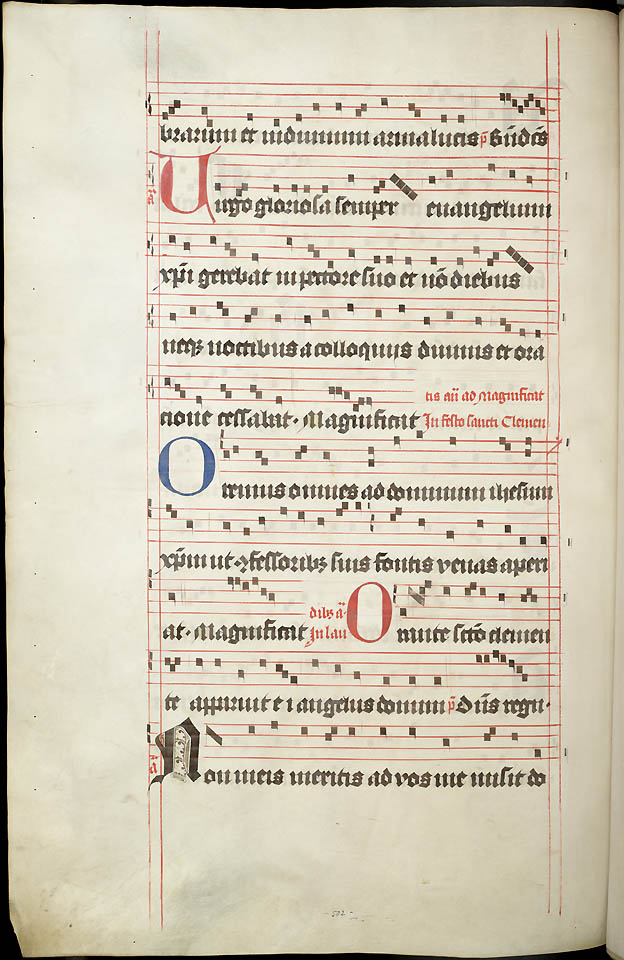 brarum et induimini arma lucis p̄ Bn̄dc̄s
a̅ Uirgo gloriosa semper euangelium
xp̄i gerebat in pectore suo et nō diebus
neqꝫ noctibus a colloquiis diuinis et ora
tione cessabat. Magnificat
tis an̄ ad Magnificat
In festo sancti Clemen
Oremus omnes ad dominum ihesum
xp̄m ut ꝯfessoribꝫ suis fontis venas aperi
at. Magnificat
dibꝫ a̅
In lau
Orante sctō clemen
te apparuit ei angelus domini p̄ Dn̄s regn.
a̅ Non meis meritis ad vos me misit do
502